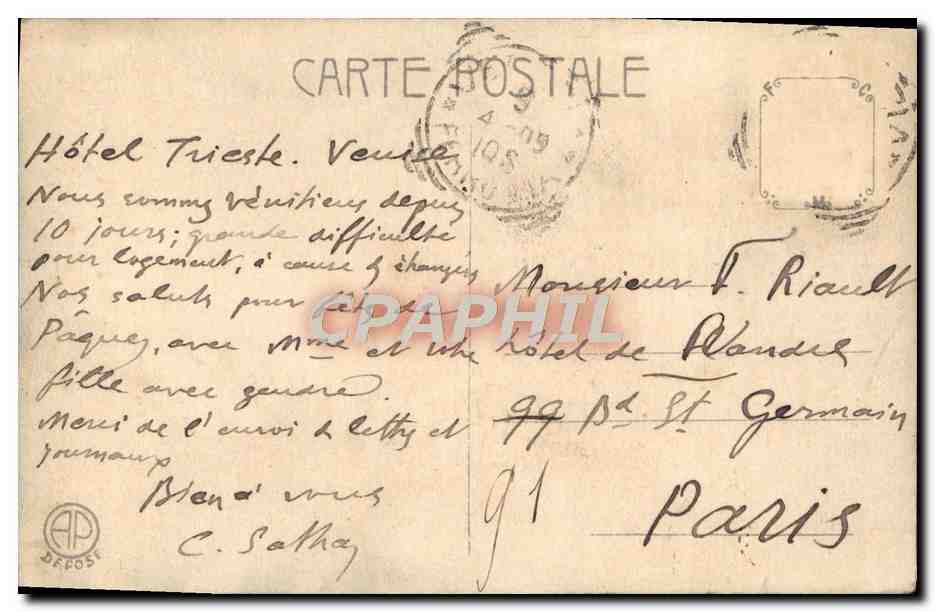 CARTE POSTALE
Hôtel Trieste. Venise
Nous sommes vénitiens depuis
10 jours; grande difficulté
pour logement, à cause d étrangers
Nos saluts pour fêtes de
Pâques, avec Mme et votre
fille avec gendre.
Merci de l'envoi de lettres et
journaux
Bien à vous
C.
Monsieur F. Riault
hôtel de Flandre
99 Bd St Germain
91
Paris
FERROVIA
F C
AP
DEPOSE
CPAPHIL